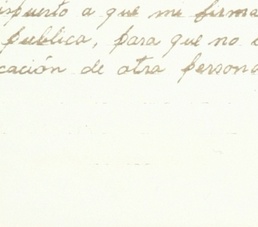 ispuesto a que me firma
publica, para que no
cación de otra persona